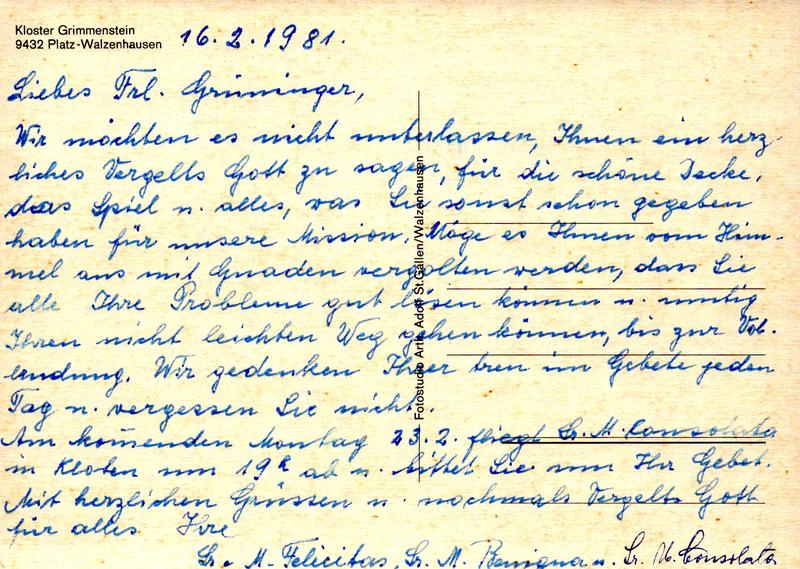 Kloster Grimmenstein
9432 Platz-Walzenhausen
16.2.1981.
Liebes Frl. Grüninger,
Wir möchten es nicht unterlassen, Ihnen ein herz-
liches Vergelts Gott zu sagen, für die schöne Decke,
das Spiel u. alles, was Sie sonst schon gegeben
haben für unsere Mission. Möge es Ihnen vom Him-
mel aus mit Gnaden vergolten werden, dass Sie
alle Ihre Probleme gut lösen können u. mutig
Ihren nicht leichten Weg gehen können, bis zur Vol-
lendung. Wir gedenken Ihrer treu im Gebete jeden
Tag u. vergessen Sie nicht.
Am kom̄enden Montag 23.2. fliegt Sr. M. Consolata
in Kloten um 19h ab u. bittet Sie um Ihr Gebet.
Mit herzlichen Grüssen u. nochmals Vergelts Gott
für alles Ihre
Sr. M. Felicitas, Sr. M. Benigna u. Sr. M. Consolata
Fotostudio Artis Adolf St.Gallen/Walzenhausen